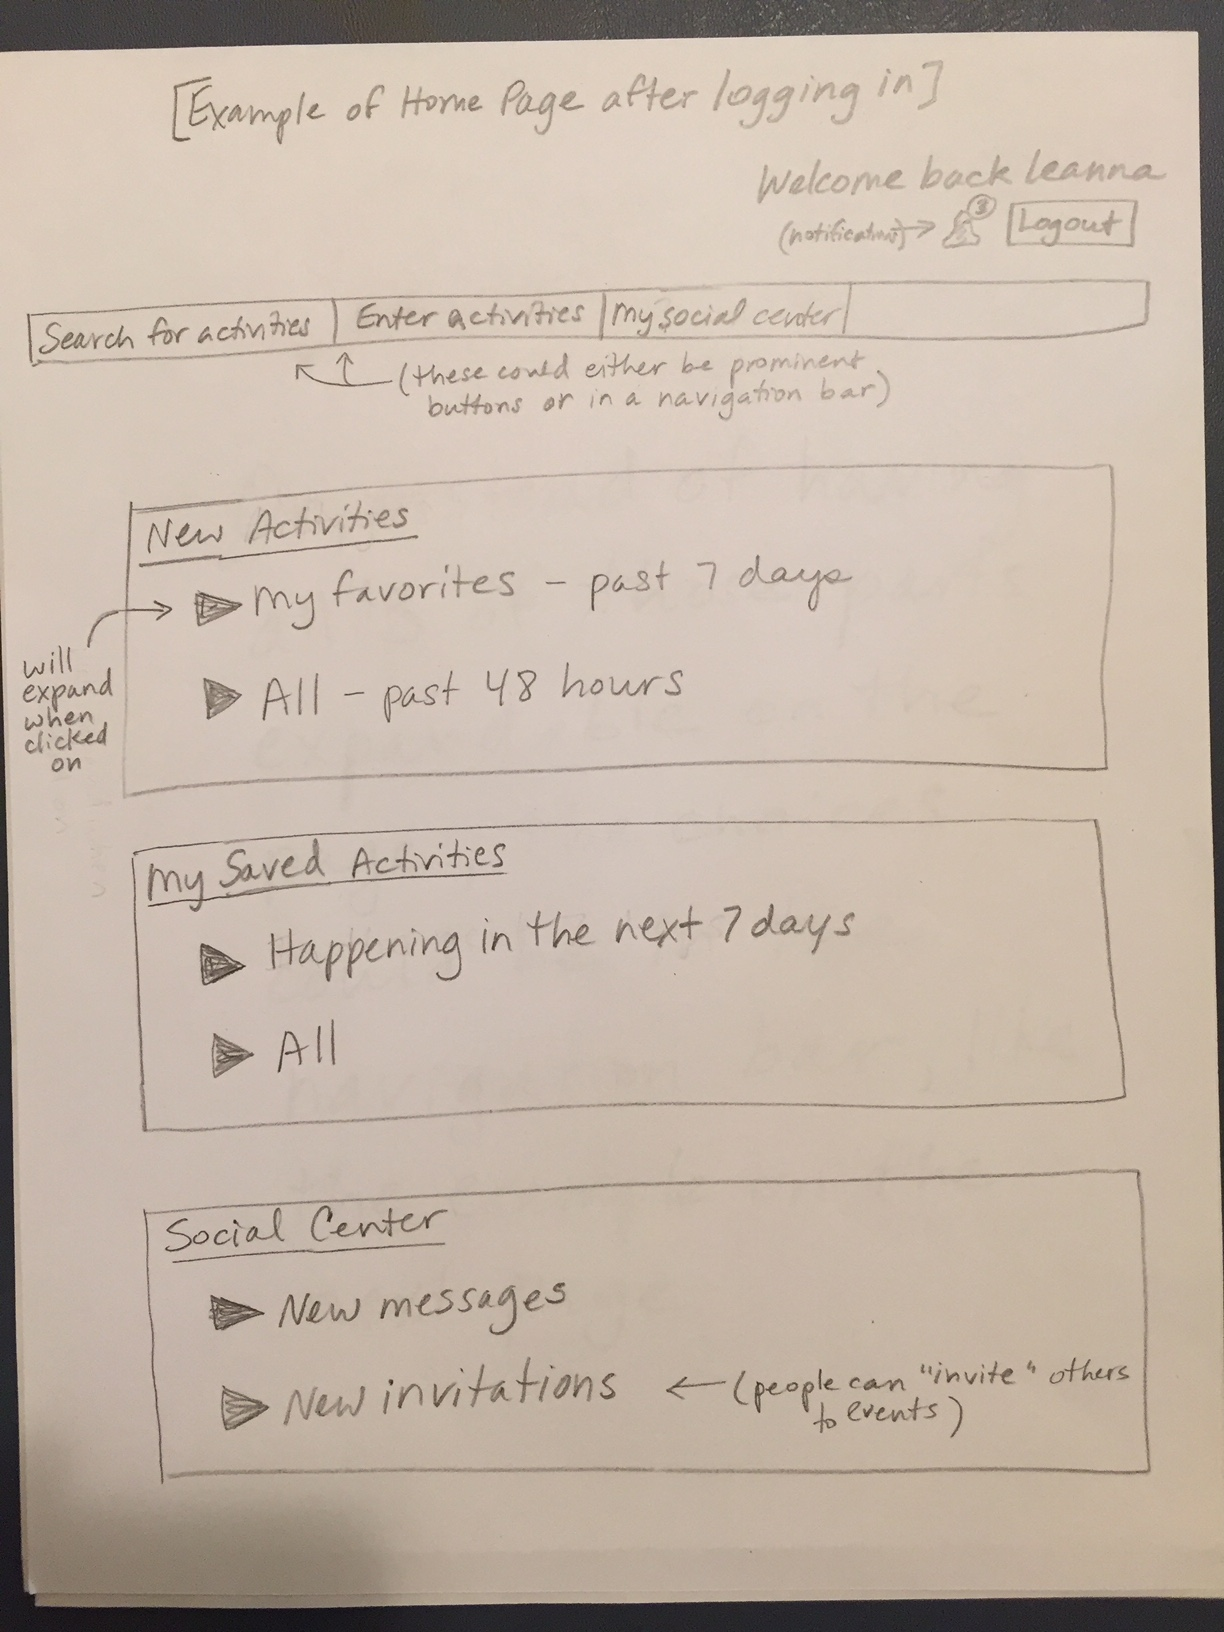 [Example of Home Page after logging in]
Welcome back leanna
(notifications) 3 Logout
Search for activities Enter activities My social center
(these could either be prominent
buttons or in a navigation bar)
New Activities
My favorites - past 7 days
All - past 48 hours
will
expand
when
clicked
on
My Saved Activities
Happening in the next 7 days
All
Social Center
New messages
New invitations (people can "invite" others
to events)